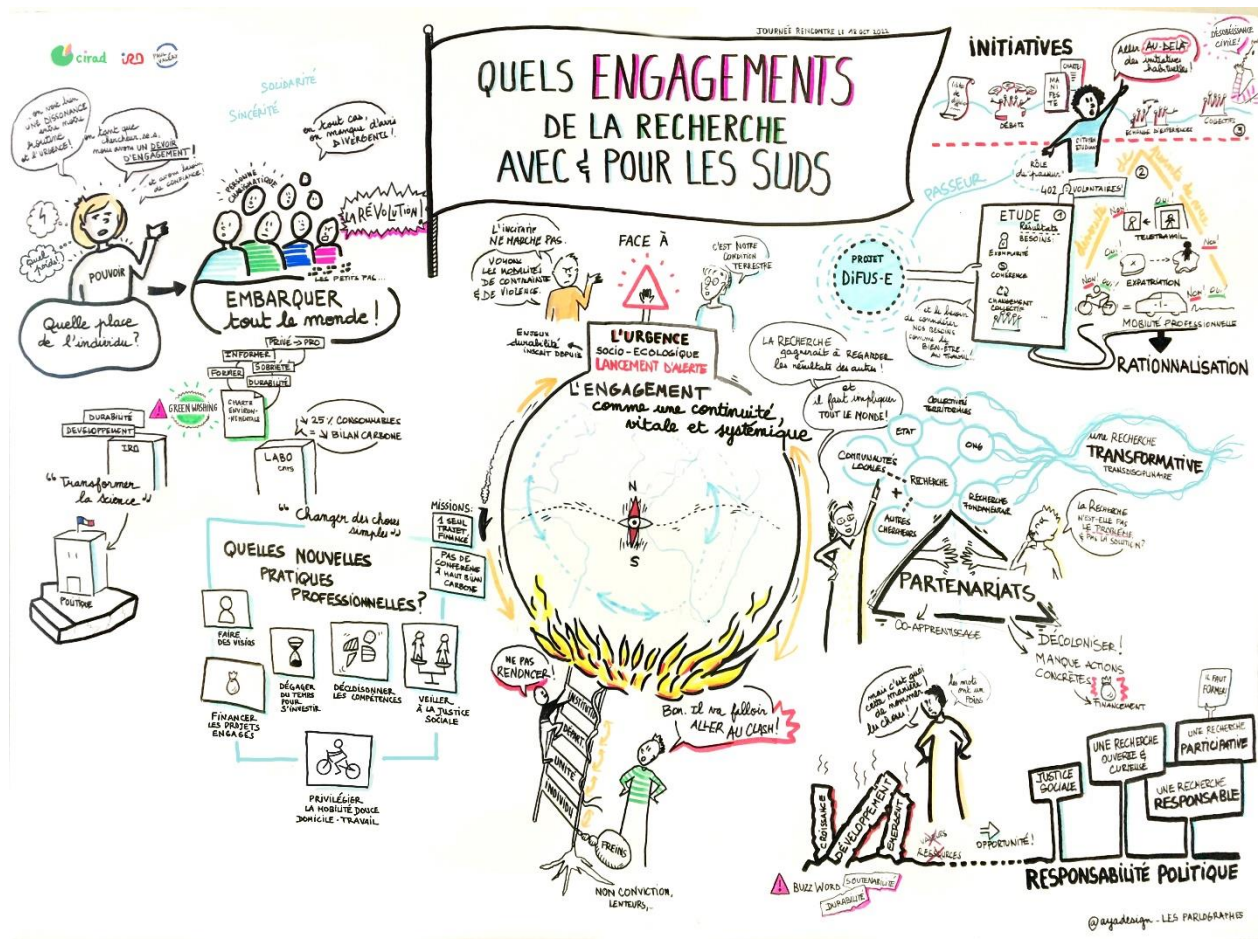 cirad
IRD
PAUL
VALÉRY
JOURNÉE RENCONTRE LE 18 OCT 2022
QUELS ENGAGEMENTS
DE LA RECHERCHE
AVEC & POUR LES SUDS
SOLIDARITÉ
SINCÉRITÉ
on voit bien
UNE DISSONANCE
entre notre
routine
et l'URGENCE!
en tant que
chercheur.se.s,
nous avons UN DEVOIR
D'ENGAGEMENT!
et avons besoin
de CONFIANCE!
Quel
poids?
POUVOIR
Quelle place
de l'individu?
en tout cas,
on manque d'avis
DIVERGENTS!
PERSONNE
CHARISMATIQUE
LA RÉVOLUTION!
LES PETITS PAS...
EMBARQUER
tout le monde!
PRIVÉ → PRO
INFORMER
SOBRIÉTÉ
FORMER
DURABILITÉ
GREEN WASHING
CHARTE
ENVIRON-
NEMENTALE
DURABILITÉ
DEVELOPPEMENT
IRD
LABO
CNRS
↘ 25% CONSOMMABLES
= ↘ BILAN CARBONE
"Transformer
la science"
POLITIQUE
"Changer des choses
simples"
MISSIONS:
1 SEUL
TRAJET
FINANCÉ
PAS DE
CONFÉRENCE
À HAUT BILAN
CARBONE
QUELLES NOUVELLES
PRATIQUES
PROFESSIONNELLES?
FAIRE
DES VISIOS
FINANCER
LES PROJETS
ENGAGÉS
DÉGAGER
DU TEMPS
POUR
S'INVESTIR
DÉCLOISONNER
LES COMPÉTENCES
VEILLER
À LA JUSTICE
SOCIALE
PRIVILÉGIER
LA MOBILITÉ DOUCE
DOMICILE-TRAVAIL
L'incitatif
NE MARCHE PAS.
VOYONS
LES MODALITÉS
DE CONTRAINTE
& DE VIOLENCE.
FACE À
C'EST NOTRE
CONDITION
TERRESTRE
ENJEUX
durabilité
INSCIT DEPUIS
L'URGENCE
SOCIO-ECOLOGIQUE
LANCEMENT D'ALERTE
L'ENGAGEMENT
comme une continuité,
vitale et systémique
N
S
NE PAS
RENONCER!
INSTITUTO
DÉPART.
UNITÉ
INDIVIDU
FREINS
NON CONVICTION,
LENTEURS,...
Bon. Il va falloir
ALLER AU CLASH!
INITIATIVES
Aller AU-DELÀ
des initiatives
habituelles!
DÉSOBÉISSANCE
CIVILE!
Liste
de
diffusion
DÉBATS
MANIFESTE
CHARTE
CITOYEN
ETUDIANT
ECHANGE D'EXPÉRIENCES
COLLECTIFS
③
RÔLE
de "passeur"
PASSEUR
402 VOLONTAIRES!
PROJET
DIFUS-E
ETUDE ①
Résultats
BESOINS:
EXEMPLARITÉ
COHÉRENCE
CHANGEMENT
COLLECTIF
...
et le besoin
de considérer
NOS BESOINS
comme le
BIEN-ÊTRE
AU TRAVAIL!
②
Non!
Oui!
TELETRAVAIL
Oui!
Non!
EXPATRIATION
Non!
Oui!
Non!
Oui
MOBILITÉ PROFESSIONNELLE
RATIONNALISATION
LA RECHERCHE
gagnerait à REGARDER
les résultats des autres!
et
il faut impliquer
TOUT LE MONDE!
COLLECTIVITÉS
TERRITORIALES
ETAT
ONG
COMMUNAUTÉS
LOCALES
RECHERCHE
+
AUTRES
CHERCHEURS
RECHERCHE
FONDAMENTALE
une RECHERCHE
TRANSFORMATIVE
TRANSDISCIPLINAIRE
La RECHERCHE
N'EST-ELLE PAS
LE PROBLÈME
& PAS LA SOLUTION?
PARTENARIATS
CO-APPRENTISSAGE
DÉCOLONISER!
MANQUE ACTIONS
CONCRÈTES
FINANCEMENT
mais c'est quoi
cette manière
de nommer
les choses!
les mots
ont un
POIDS
CROISSANCE
DÉVELOPPEMENT
EMERGENT
RESSOURCES
OPPORTUNITÉ!
BUZZ WORD
SOUTENABILITÉ
DURABILITÉ
JUSTICE
SOCIALE
UNE RECHERCHE
OUVERTE &
CURIEUSE
IL FAUT
FORMER!
UNE RECHERCHE
PARTICIPATIVE
UNE RECHERCHE
RESPONSABLE
RESPONSABILITÉ POLITIQUE
@ayadesign - LES PARLOGRAPHES